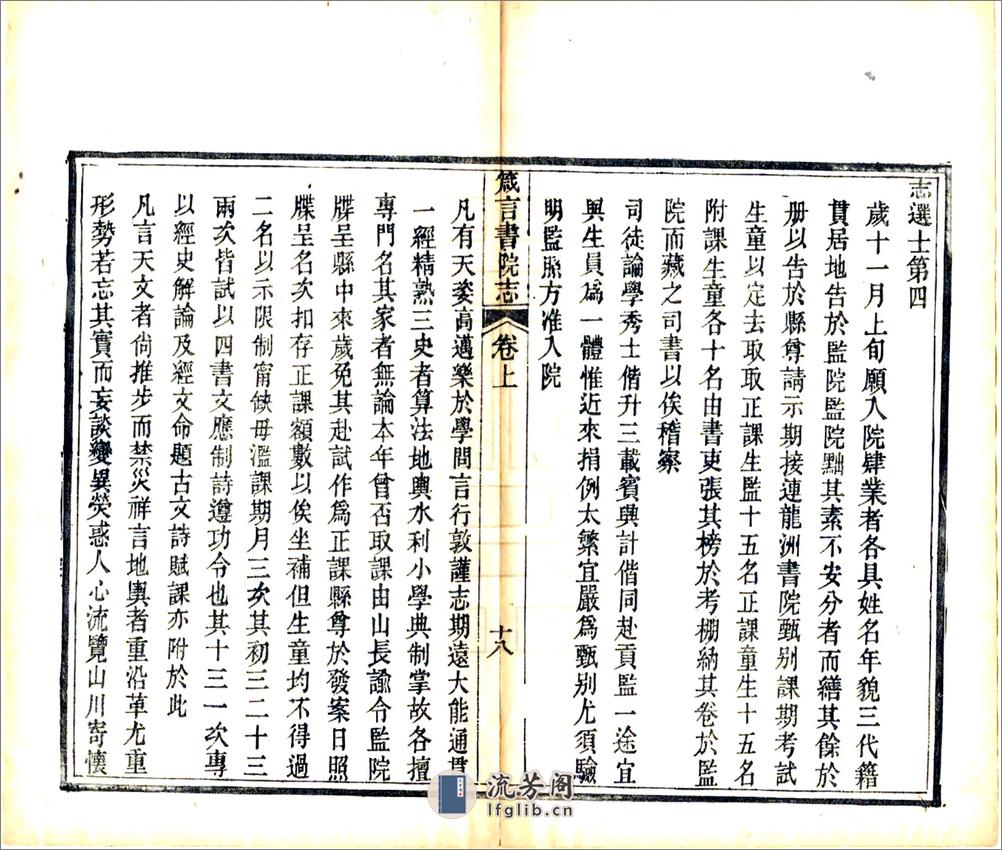 志選士第四
歲十一月上旬願入院肄業者各具姓名年貌三代籍
貫居地告於監院監院黜其素不安分者而繕其餘於
册以告於縣尊請示期接連龍洲書院甄别課期考試
生童以定去取取正課生監十五名正課童生十五名
附課生童各十名由書吏張其榜於考棚納其卷於監
院而藏之司書以俟稽察
司徒論學秀士偕升三載賓興計偕同赴貢監一途宜
與生員爲一體惟近來捐例太繁宜嚴爲甄别尤須驗
明監照方准入院
箴言書院志
卷上
十八
凡有天姿高邁樂於學問言行敦謹志期遠大能通貫
一經精熟三史者算法地輿水利小學典制掌故各擅
專門名其家者無論本年曾否取課由山長諭令監院
牒呈縣中來歲免其赴試作爲正課縣尊於發案日照
牒呈名次扣存正課額數以俟坐補但生童均不得過
二名以示限制甯缺毋濫課期月三次其初三二十三
兩次皆試以四書文應制詩遵功令也其十三一次專
以經史解論及經文命題古文詩賦課亦附於此
凡言天文者尚推步而禁災祥言地輿者重沿革尤重
形勢若忘其實而妄談變異熒惑人心流覽山川寄懷
流芳阁
lfglib.cn